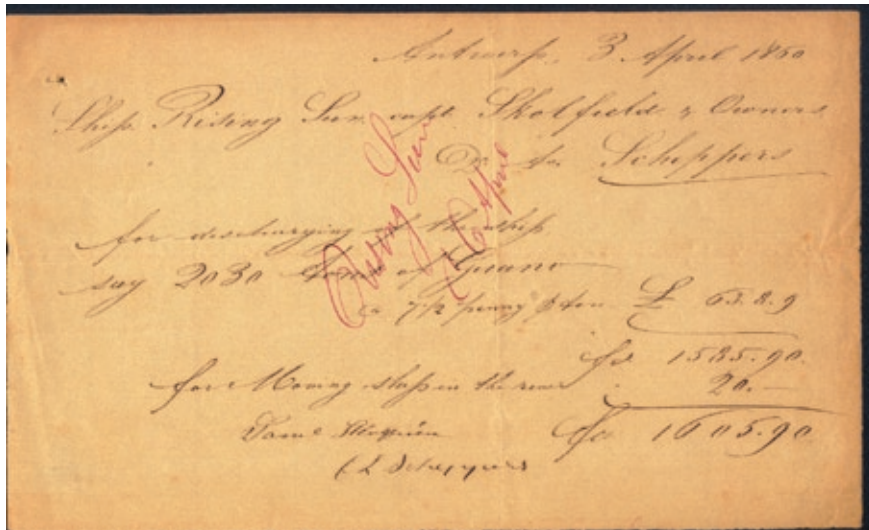 Antwerp, 3 April 1860
Ship Rising Sun capt. Skolfield & Owners
Dr. to Scheppers
for discharging of the ship
say 2030 tons of Guano
a 7½ penny p ton £ 63.8.9
fcs 1585.90
for Moving ship in the river 20.—
fcs 1605.90
Scheppers
Rising Sun
6 April